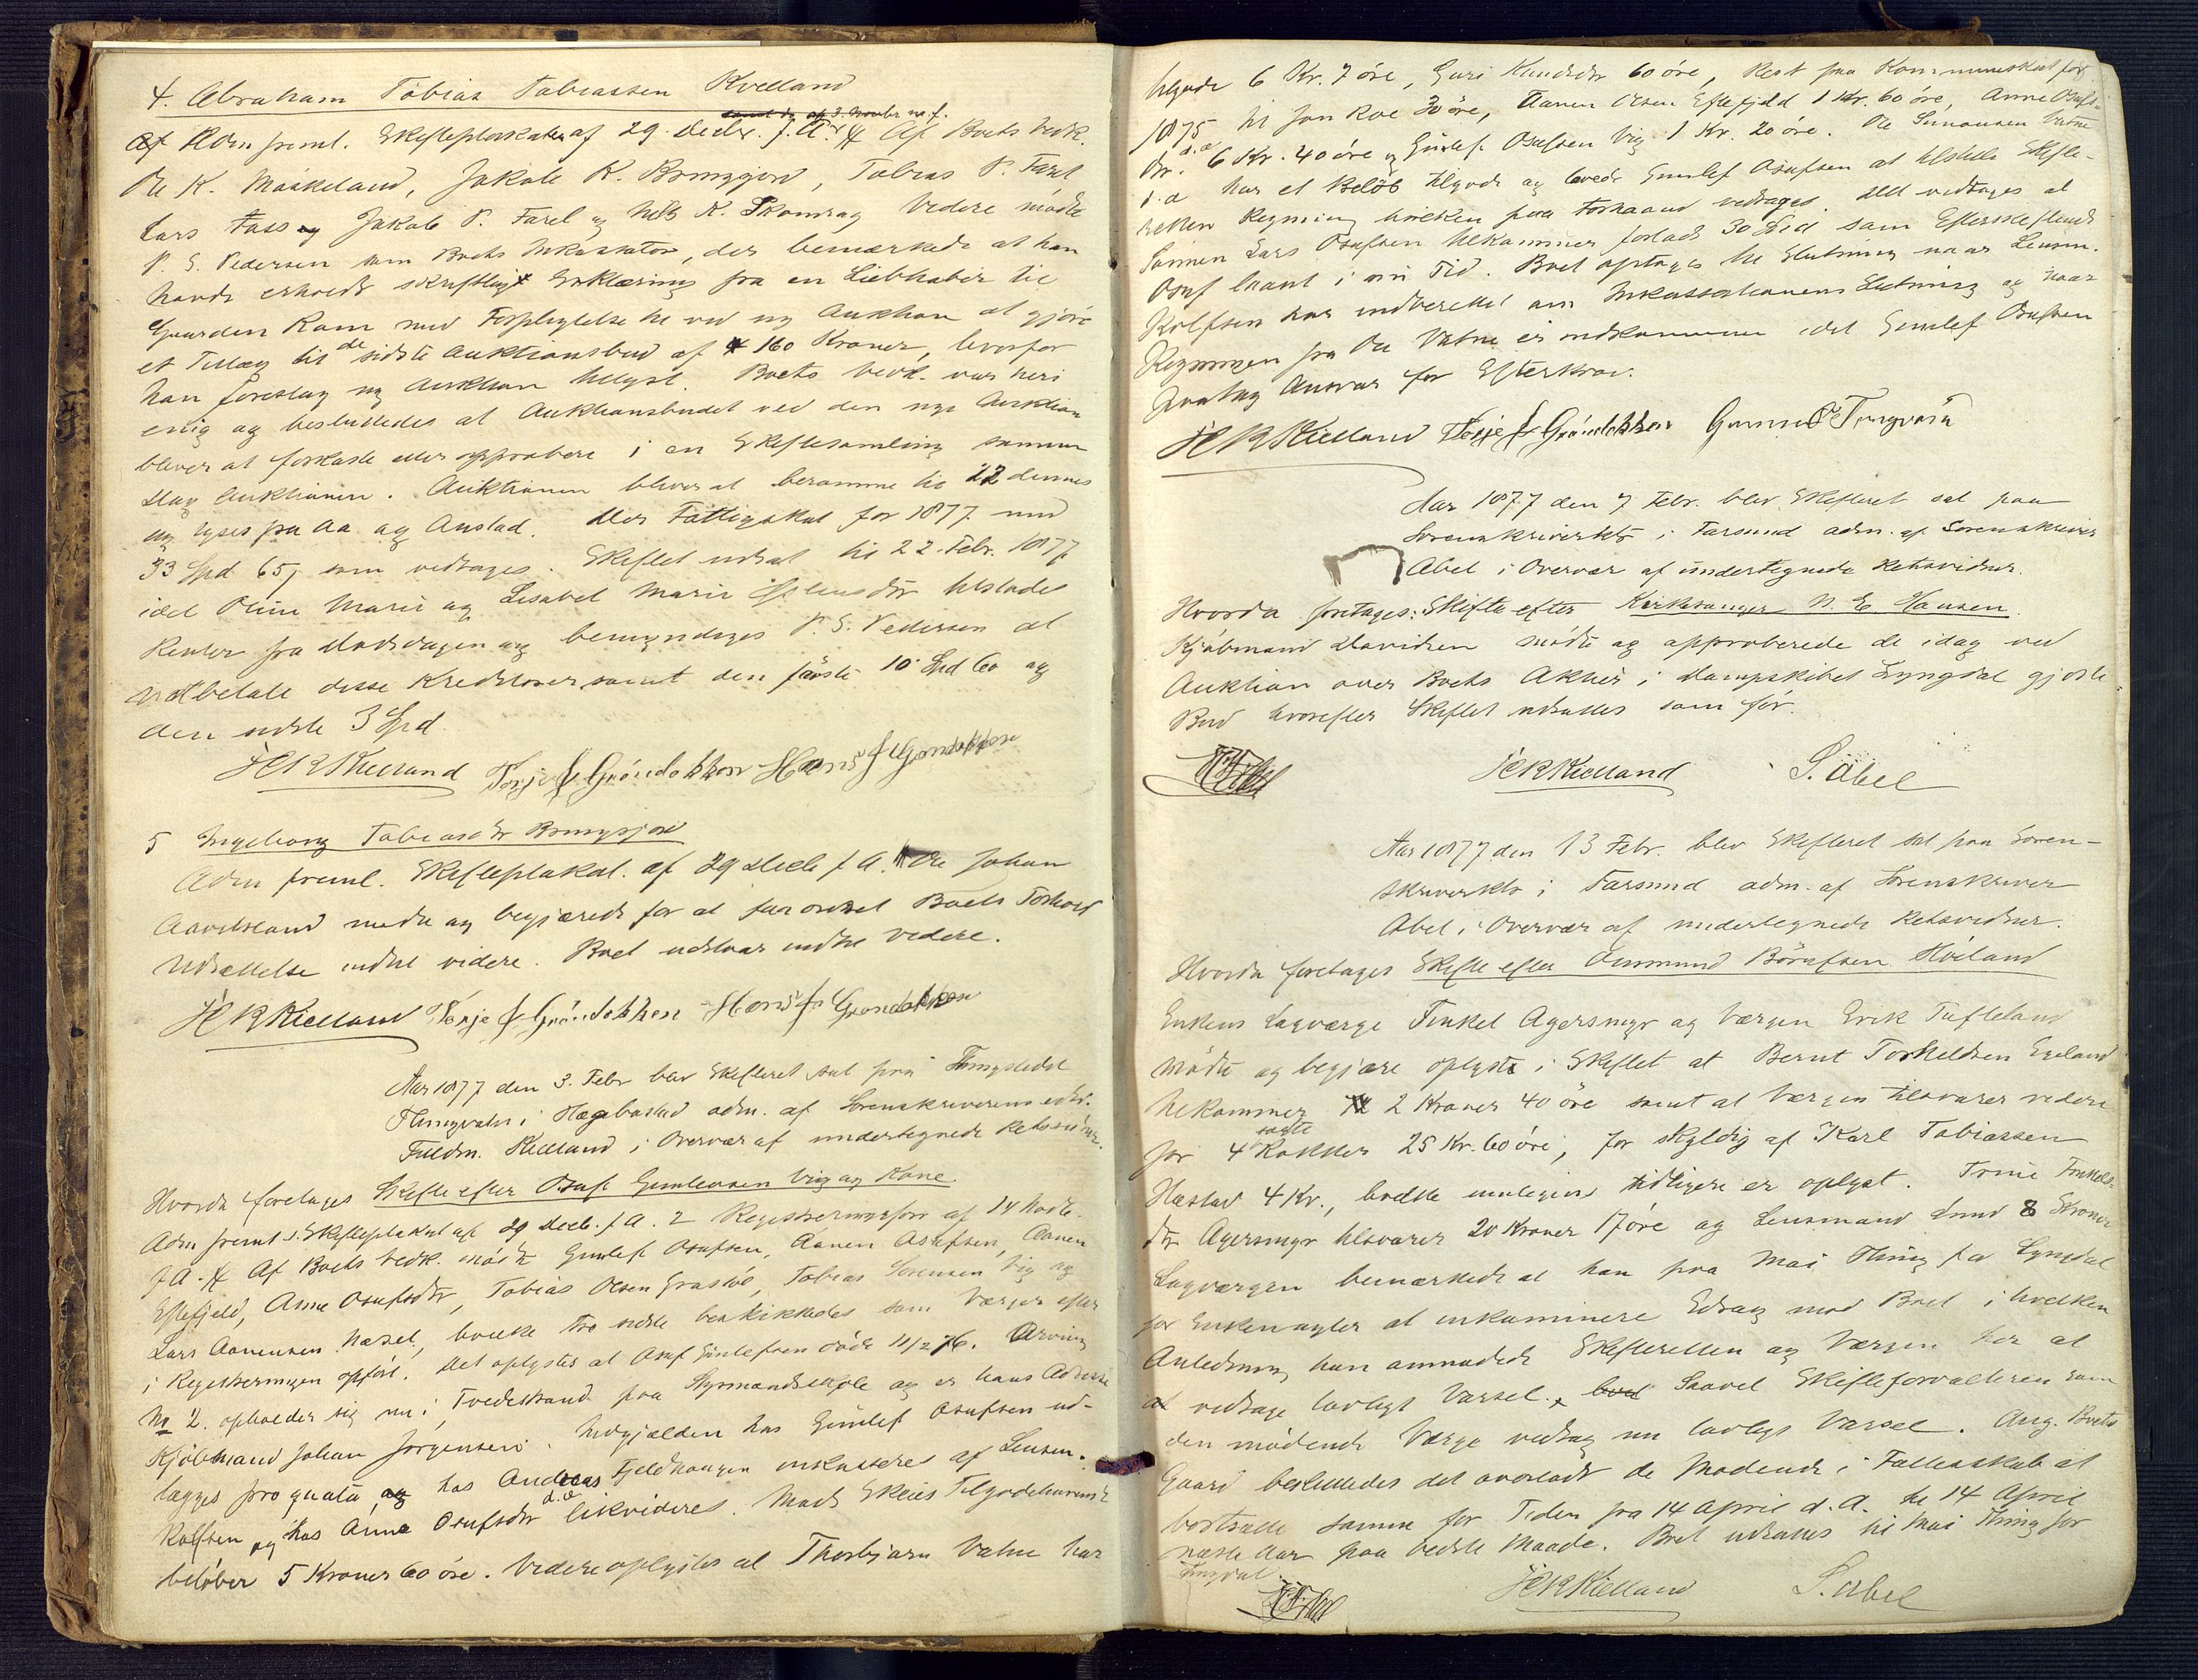 4. Abraham Tobias Tobiassen Kvelland
samt do af 3. Novbr n. f.
Af Adm freml. Skifteplakater af 29. Decbr. f. A. Af Boets Vedk.
Ole K. Moskeland, Jakob K. Bringsjord, Tobias P. Faret
Lars Fass og Jakob P. Faret og Nils K. Skomrag Videre mødte
P. S. Pedersen som Boets Inkassator, der bemærkede at han
havde erholdt skriftligt Erklæring fra en Liebhaber til
Gaarden Ram med Forpligtelse til ved ny Auktion at gjøre
et Tillæg til de sidste Auktionsbud af 160 Kroner, hvorfor
han foreslog ny Auktion holdt. Boets Vedk. var heri
enig og besluttedes at Auktionsbudet ved den nye Auktion
bliver at forkaste eller approbere i en Skiftesamling samme
Dag Auktionen. Auktionen bliver at beramme til 22 dennes
og lyses paa Aa og Austad. Der Fattigskat for 1877 med
33 Spd 65, som vedtages. Skiftet udsat til 22 Febr. 1877
idet Oline Marie og Lisabet Marie tilstodes
Renter fra Dødsdagen og bemyndiges P. S. Pedersen at
udbetale disse Kreditorer samt den første 10 Spd 60 og
den sidste 3 Spd.
JCR Kielland Terje J Gröndokken Hans J Gröndokken
5 Ingeborg Tobiasdtr Bringsjord
Adm freml. Skifteplakat. af 29 Decb f A. Ole Johan
Aavitsland mødte og begjærede for at faa ordnet Boets Forhold
Udsættelse indtil videre. Boet udstaar indtil videre.
JCR Kielland Terje J Gröndokken Hans J Gröndokken
Aar 1877 den 3. Febr blev Skifteret sat paa Thingstedet
Thingvatn i Hægebostad adm. af Sorenskriverens edsv.
Fuldm. Kielland i Overvær af undertegnede Retsvidner.
Hvorda foretages Skifte efter Osuf Gunlevsen Vig og Kone
Adm fremt. Skifteplakat af 29 Decb. f A. 2 Registreringsforr af 14 Novb.
f A. Af Boets Vedk. mødte Gunlef Osufsen, Aanen Osufsen, Aanen
Eftefjeld, Anne Osufsdtr, Tobias Olsen , Tobias Sørensen Vig og
Lars Aanensen Næset, hvilke tvo sidste beskikkedes som Værger efter
i Registreringen opført. Det oplystes at Osuf Gunlefsen døde 11/2 76. Arving
No 2. opholder sig nu i Tvedestrand paa Styrmandsskole og er hans Adresse
Kjøbmand Johan Jørgensen. Indgjælden hos Gunlef Osufsen ud-
lægges pro quota, hos Andreas Fjeldhaugen inkasseres af Lensm.
Rolfsen og hos Anna Osufsdtr d.o likvideres. Mads Tilgodehavende
beløber 5 Kroner 60 öre. Videre oplystes at Thorbjørn Vatne har
tilgode 6 Kr. 7 öre, Guri Knudsdtr 60 öre, Rest paa Kommuneskat for
1875 til Jon Roe 30 öre, Aanen Olsen Eftefjeld 1 Kr. 60 öre, Anne Osufs-
dtr. 6 Kr. 40 öre og Gunlef Osufsen Vig 1 Kr. 20 öre. Ole Simonsen Vatne
har et Beløb tilgode og lovede Gunlef Osufsen at tilstille Skifte-
retten Regning hvilken paa Forhaand vedtages. Det vedtages at
Sønnen Lars Osufsen tilkommer forlods 30 Spd som
Osuf laant i sin Tid. Boet optages til Slutning naar Lensm.
Rolfsen har indberettet om Inkassationens Slutning og naar
Regningen fra Ole Vatne er indkommen idet Gunlef Osufsen
paatog Ansvar for Efterkrav.
JCR Kielland Terje J Gröndokken Gunnul O Tingvatn
Aar 1877 den 7 Febr. blev Skifteret sat paa
Sorenskriverktr i Farsund adm. af Sorenskriver
Abel i Overvær af undertegnede Retsvidner.
Hvorda foretages: Skifte efter Kirkesanger N. E. Hansen
Kjøbmand Davidsen mødte og approberede de idag ved
Auktion over Boets Aktier i Dampskibet Lyngdal gjorte
Bud hvorefter Skiftet udsattes som før.
JCR Kielland S. Abel
Aar 1877 den 13 Febr. blev Skifteret sat paa Soren-
skriverktr i Farsund adm. af Sorenskriver
Abel i Overvær af undertegnede Retsvidner.
Hvorda foretages Skifte efter Aanmund Börufsen Höiland
Enkens Lagværge Tinkel Agersmyr og Værgen Erik Tufteland
mødte og begjære oplyst i Skiftet at Bernt Torkeldsen Egeland
tilkommer 2 Kroner 40 öre samt at Værgen tilsvarer videre
for 4 solgte Rokker 25 Kr. 60 öre, for skyldig af Karl Tobiassen
Hæstad 4 Kr., hvilke muligens tidligere er oplyst. Trine Tinkels-
dtr Agersmyr tilsvarer 20 Kroner 17 öre og Lensmand Lund 8 Kroner
Lagværgen bemærkede at han paa Mai Thing f a Lyngdal
for Enken agter at inkaminere Sdrag mod Boet i hvilken
Anledning han anmodede Skifteretten og Værgen her at
vedtage lovligt Varsel. Saavel Skifteforvalteren som
den mødende Værge vedtog nu lovligt Varsel. Ang. Boets
Gaard besluttedes det overladt de Mødende i Fællesskab at
bortsætte samme for Tiden fra 14 April d. A. til 14 April
næste Aar paa bedste Maade. Boet udsattes til Mai Thing for
Lyngdal.
JCR Kielland S. Abel